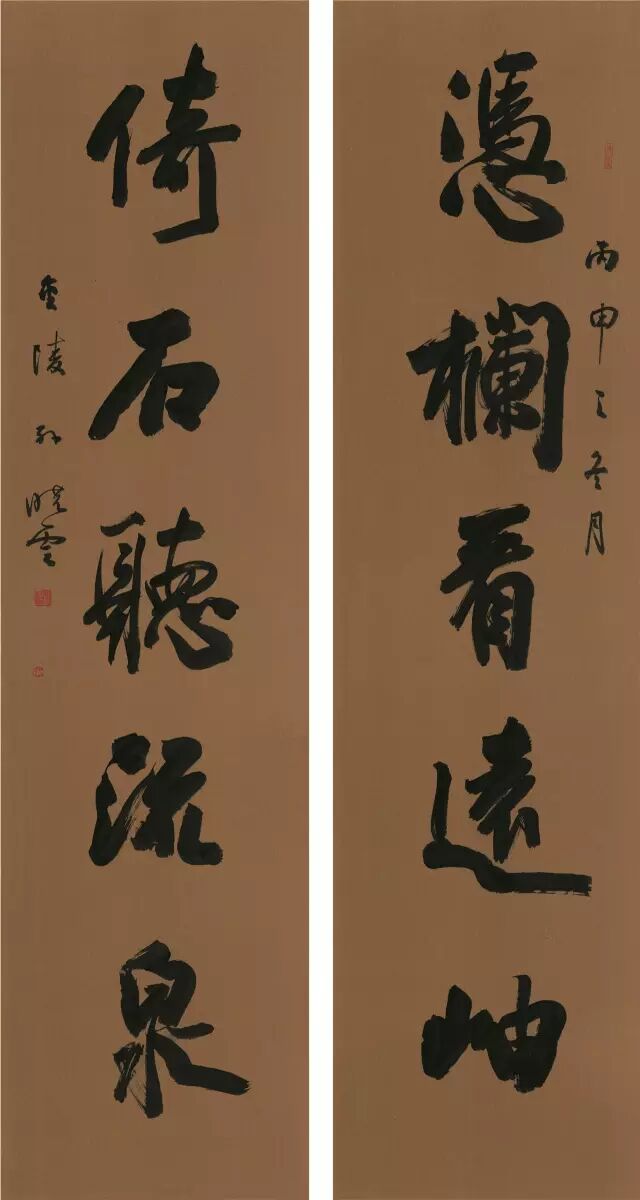 憑欄看遠岫
丙申之冬月
倚石聽流泉
金陵孙晓雲